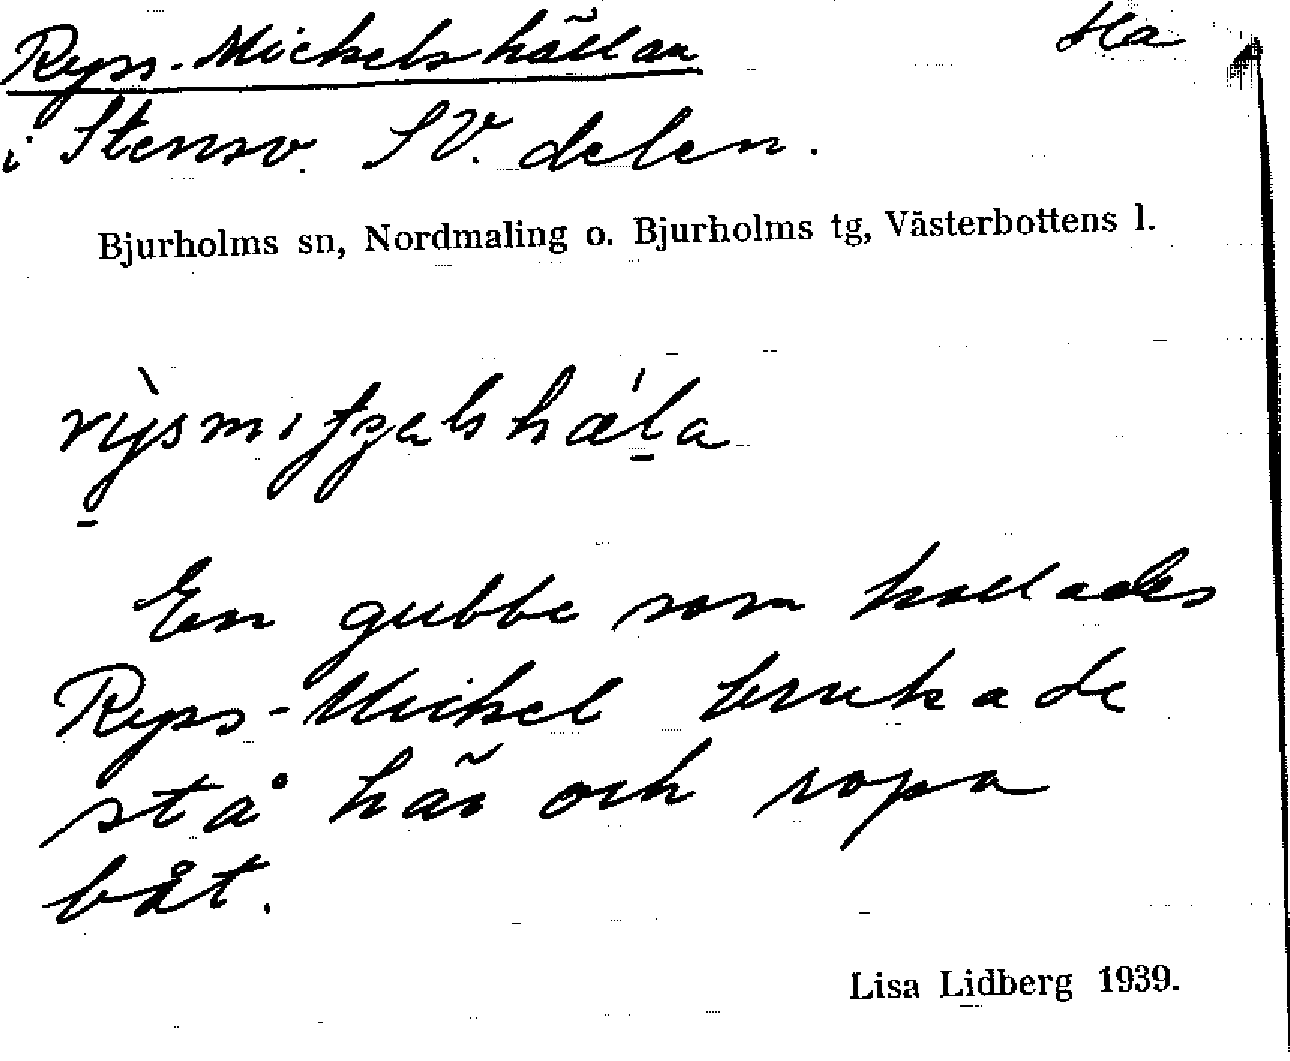 Ryss-Mickelshällan Ha
i Stensv. SV. delen.
Bjurholms sn, Nordmaling o. Bjurholms tg, Västerbottens l.
En gubbe som kallades
Ryss-Mickel brukade
stå här och ropa
båt.
Lisa Lidberg 1939.